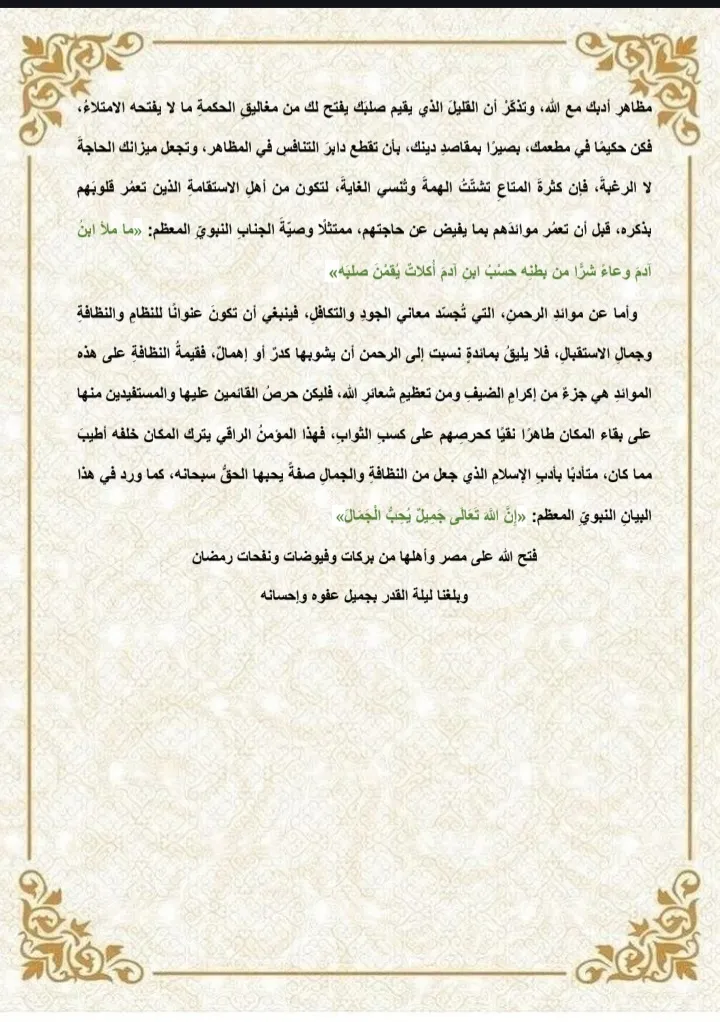 مظاهرِ أدبك مع الله، وتذكَّرْ أن القليلَ الذي يقيم صلبَك يفتح لك من مغاليقِ الحكمةِ ما لا يفتحه الامتلاءُ،
فكن حكيمًا في مطعمك، بصيرًا بمقاصدِ دينك، بأن تقطع دابرَ التنافس في المظاهر، وتجعل ميزانك الحاجةَ
لا الرغبةَ، فإن كثرةَ المتاعِ تشتِّتُ الهمةَ وتُنسي الغايةَ، لتكون من أهلِ الاستقامةِ الذين تعمُر قلوبَهم
بذكره، قبل أن تعمُر موائدَهم بما يفيض عن حاجتهم، ممتثلًا وصيّةَ الجنابِ النبويّ المعظم: «ما ملأ ابنُ
آدمَ وعاءً شرًّا من بطنِه حسْبُ ابنِ آدمَ أُكلاتٌ يُقمْنَ صلبَه»
وأما عن موائدِ الرحمنِ، التي تُجسّد معاني الجودِ والتكافلِ، فينبغي أن تكونَ عنوانًا للنظامِ والنظافةِ
وجمالِ الاستقبالِ، فلا يليقُ بمائدةٍ نسبت إلى الرحمن أن يشوبها كدرٌ أو إهمالٌ، فقيمةُ النظافةِ على هذه
الموائدِ هي جزءٌ من إكرامِ الضيفِ ومن تعظيمِ شعائرِ الله، فليكن حرصُ القائمين عليها والمستفيدين منها
على بقاء المكان طاهرًا نقيًا كحرصِهم على كسبِ الثوابِ، فهذا المؤمنُ الراقي يترك المكان خلفه أطيبَ
مما كان، متأدبًا بأدبِ الإسلامِ الذي جعل من النظافةِ والجمالِ صفةً يحبها الحقُّ سبحانه، كما ورد في هذا
البيانِ النبويّ المعظم: «إنَّ اللهَ تَعَالَى جَمِيلٌ يُحِبُّ الْجَمَالَ»
فتح الله على مصر وأهلها من بركات وفيوضات ونفحات رمضان
وبلغنا ليلة القدر بجميل عفوه وإحسانه